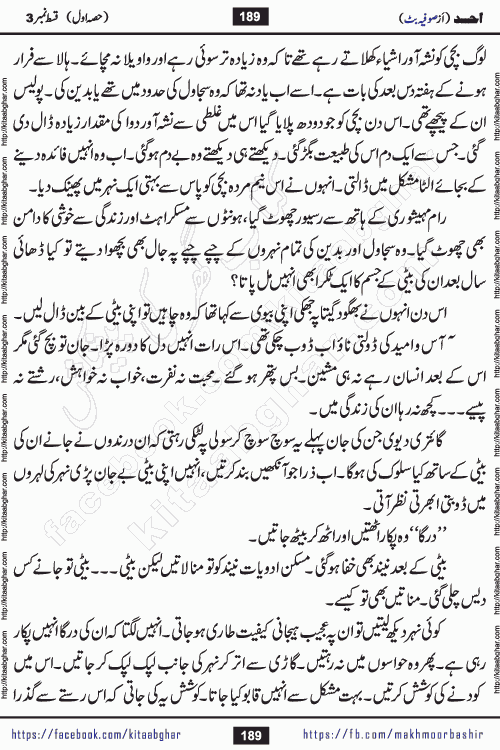 احمد (از صوفیہ بٹ)
189
(حصہ اول) قسط نمبر 3
لوگ بچی کو نشہ آور اشیاء کھلاتے رہے تھے تاکہ وہ زیادہ تر سوئی رہے اور واویلا نہ مچائے۔ ہالا سے فرار
ہونے کے ہفتہ دس بعد کی بات ہے۔ اسے اب یاد نہ تھا کہ وہ سجاول کی حدود میں تھے یا بدین کی۔ پولیس
ان کے پیچھے تھی۔ اس دن بچی کو جو دودھ پلایا گیا اس میں غلطی سے نشہ آور دوا کی مقدار زیادہ ڈال دی
گئی۔ جس سے ایک دم اس کی طبیعت بگڑ گئی۔ دیکھتے ہی دیکھتے وہ بے دم ہو گئی۔ اب وہ انہیں فائدہ دینے
کے بجائے الٹا مشکل میں ڈالتی۔ انہوں نے اس نیم مردہ بچی کو پاس سے بہتی ایک نہر میں پھینک دیا۔
رام مہیشوری کے ہاتھ سے رسیور چھوٹ گیا، ہونٹوں سے مسکراہٹ اور زندگی سے خوشی کا دامن
بھی چھوٹ گیا۔ وہ سجاول اور بدین کی تمام نہروں کے چپے چپے پہ جال بھی بچھوا دیتے تو کیا ڈھائی
سال بعد ان کی بیٹی کے جسم کا ایک ٹکڑا بھی انہیں مل پاتا؟
اس دن انہوں نے بھگود گیتا پہ جھکی اپنی بیوی سے کہا تھا کہ وہ چاہیں تو اپنی بیٹی کے بین ڈال لیں۔
آس و امید کی ڈولتی ناؤ اب ڈوب چکی تھی۔ اس رات انہیں دل کا دورہ پڑا۔ جان تو بچ گئی مگر
اس کے بعد انسان رہے نہ ہی مشین۔ بس پتھر ہو گئے۔ محبت نہ نفرت، خواب نہ خواہش، رشتے نہ
پیسے۔۔۔ کچھ نہ رہا ان کی زندگی میں۔
گائتری دیوی جن کی جان پہلے یہ سوچ سوچ کر سولی پہ لٹکی رہتی کہ ان درندوں نے جانے ان کی
بیٹی کے ساتھ کیا سلوک کی ہوگا۔ اب ذرا جو آنکھیں بند کرتیں، انہیں اپنی بیٹی بے جان پڑی نہر کی لہروں
میں ڈوبتی ابھرتی نظر آتی۔
”درگا“ وہ پکار اٹھتیں اور اٹھ کر بیٹھ جاتیں۔
بیٹی کے بعد نیند بھی خفا ہو گئی۔ مسکن ادویات نیند کو تو منا لاتیں لیکن بیٹی۔۔۔ بیٹی تو جانے کس
دیس چلی گئی۔ مناتیں بھی تو کیسے۔
کوئی نہر دیکھ لیتیں تو ان پہ عجیب ہیجانی کیفیت طاری ہو جاتی۔ انہیں لگتا کہ ان کی درگا انہیں پکار
رہی ہے۔ پھر وہ حواسوں میں نہ رہتیں۔ گاڑی سے اتر کر نہر کی جانب لپک لپک کر جاتیں۔ اس میں
کودنے کی کوشش کرتیں۔ بہت مشکل سے انہیں قابو کیا جاتا۔ کوشش یہ کی جاتی کہ اس رستے سے گذرا
https://facebook.com/kitaabghar
189
https://fb.com/makhmoorbashir
http://kitaabghar.com
facebook.com/kitaabghar
kitaabghar.com